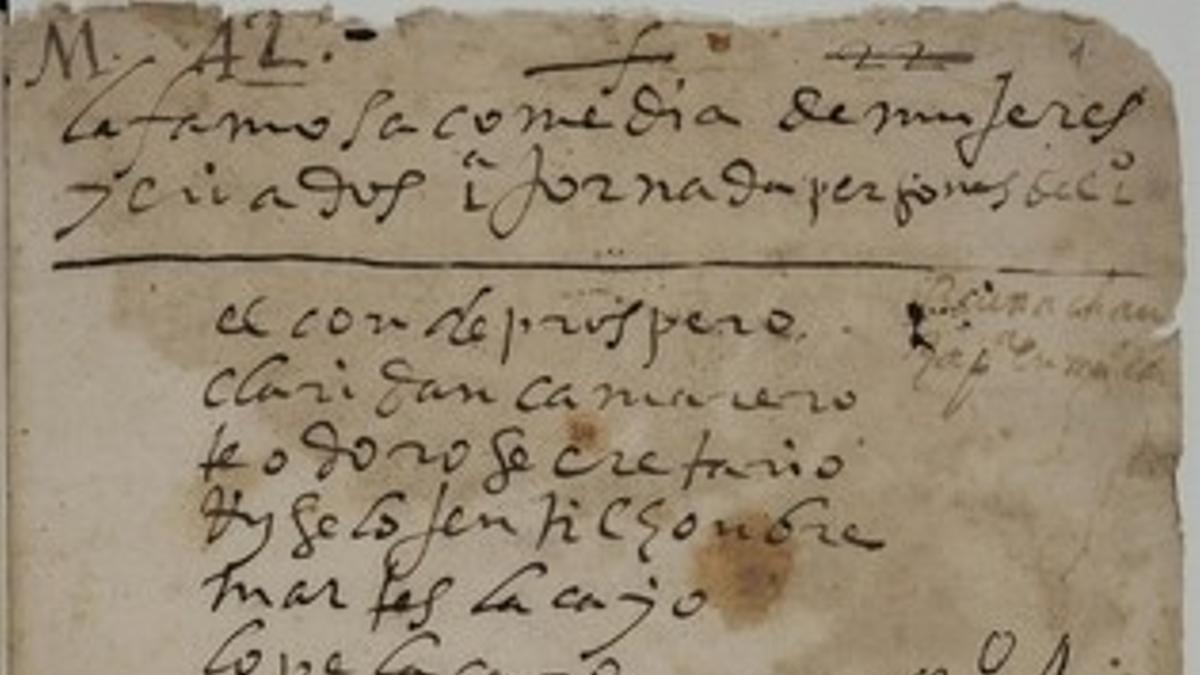 M. 42.
la famosa comedia de mujeres
y criados 1ª jornada personas de
el conde prospero
claridan camarero
teodoro secretario
gentilhonbre
martes lacayo
lope lacayo